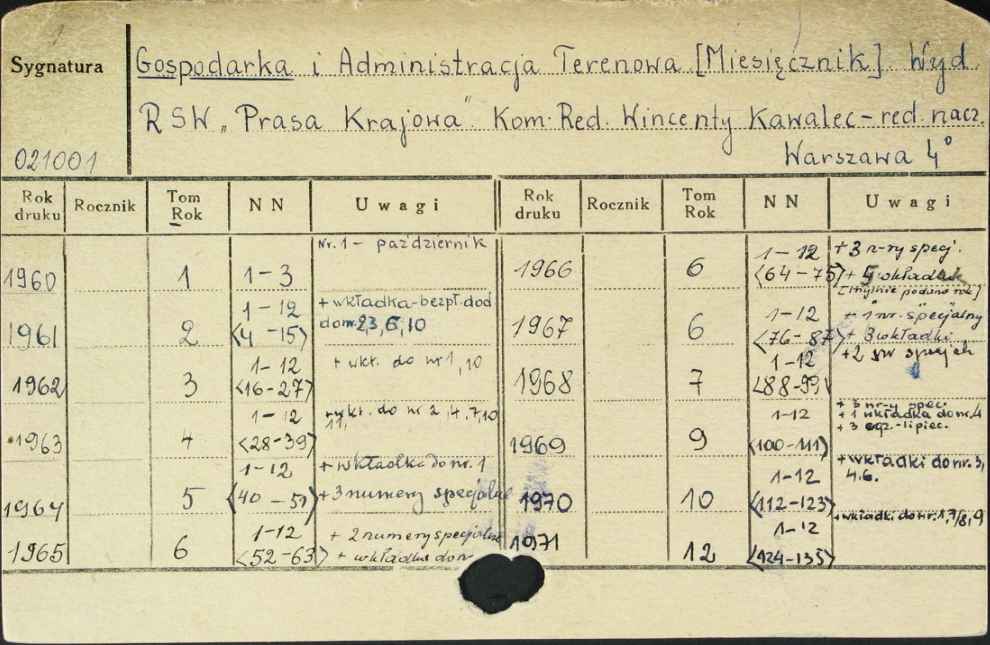 Sygnatura
Gospodarka i Administracja Terenowa [Miesięcznik]. Wyd.
RSW „Prasa Krajowa" Kom. Red. Wincenty Kawalec - red. nacz.
021001 Warszawa 4°
Rok druku Rocznik Tom Rok NN Uwagi Rok druku Rocznik Tom Rok NN Uwagi
1960 1 1-3 Nr. 1 - październik
1961 2 1-12 <4-15> + wkładka-bezpł. dod do nr. 2,3,6,10
1962 3 1-12 <16-27> + wkł. do nr 1, 10
1963 4 1-12 <28-39> do nr 2, 4, 7, 10 11,
1964 5 1-12 <40-51> + wkładka do nr. 1 + 3 numery specjalne
1965 6 1-12 <52-63> + 2 numery specjalne + wkładka do nr
1966 6 1-12 <64-75> + 3 n-ry specj. + wkładek [mylnie podano rok]
1967 6 1-12 <76-87> + 1 nr. specjalny + 3 wkładki
1968 7 1-12 <88-99> +2
1969 9 1-12 <100-111> + 3 nr-y spec. + 1 wkładka do nr. 4 + 3 egz. - lipiec.
1970 10 1-12 <112-123> + wkładki do nr. 3, 4. 6.
1971 12 1-12 <124-135> + wkładki do nr. 1, 7/8, 9